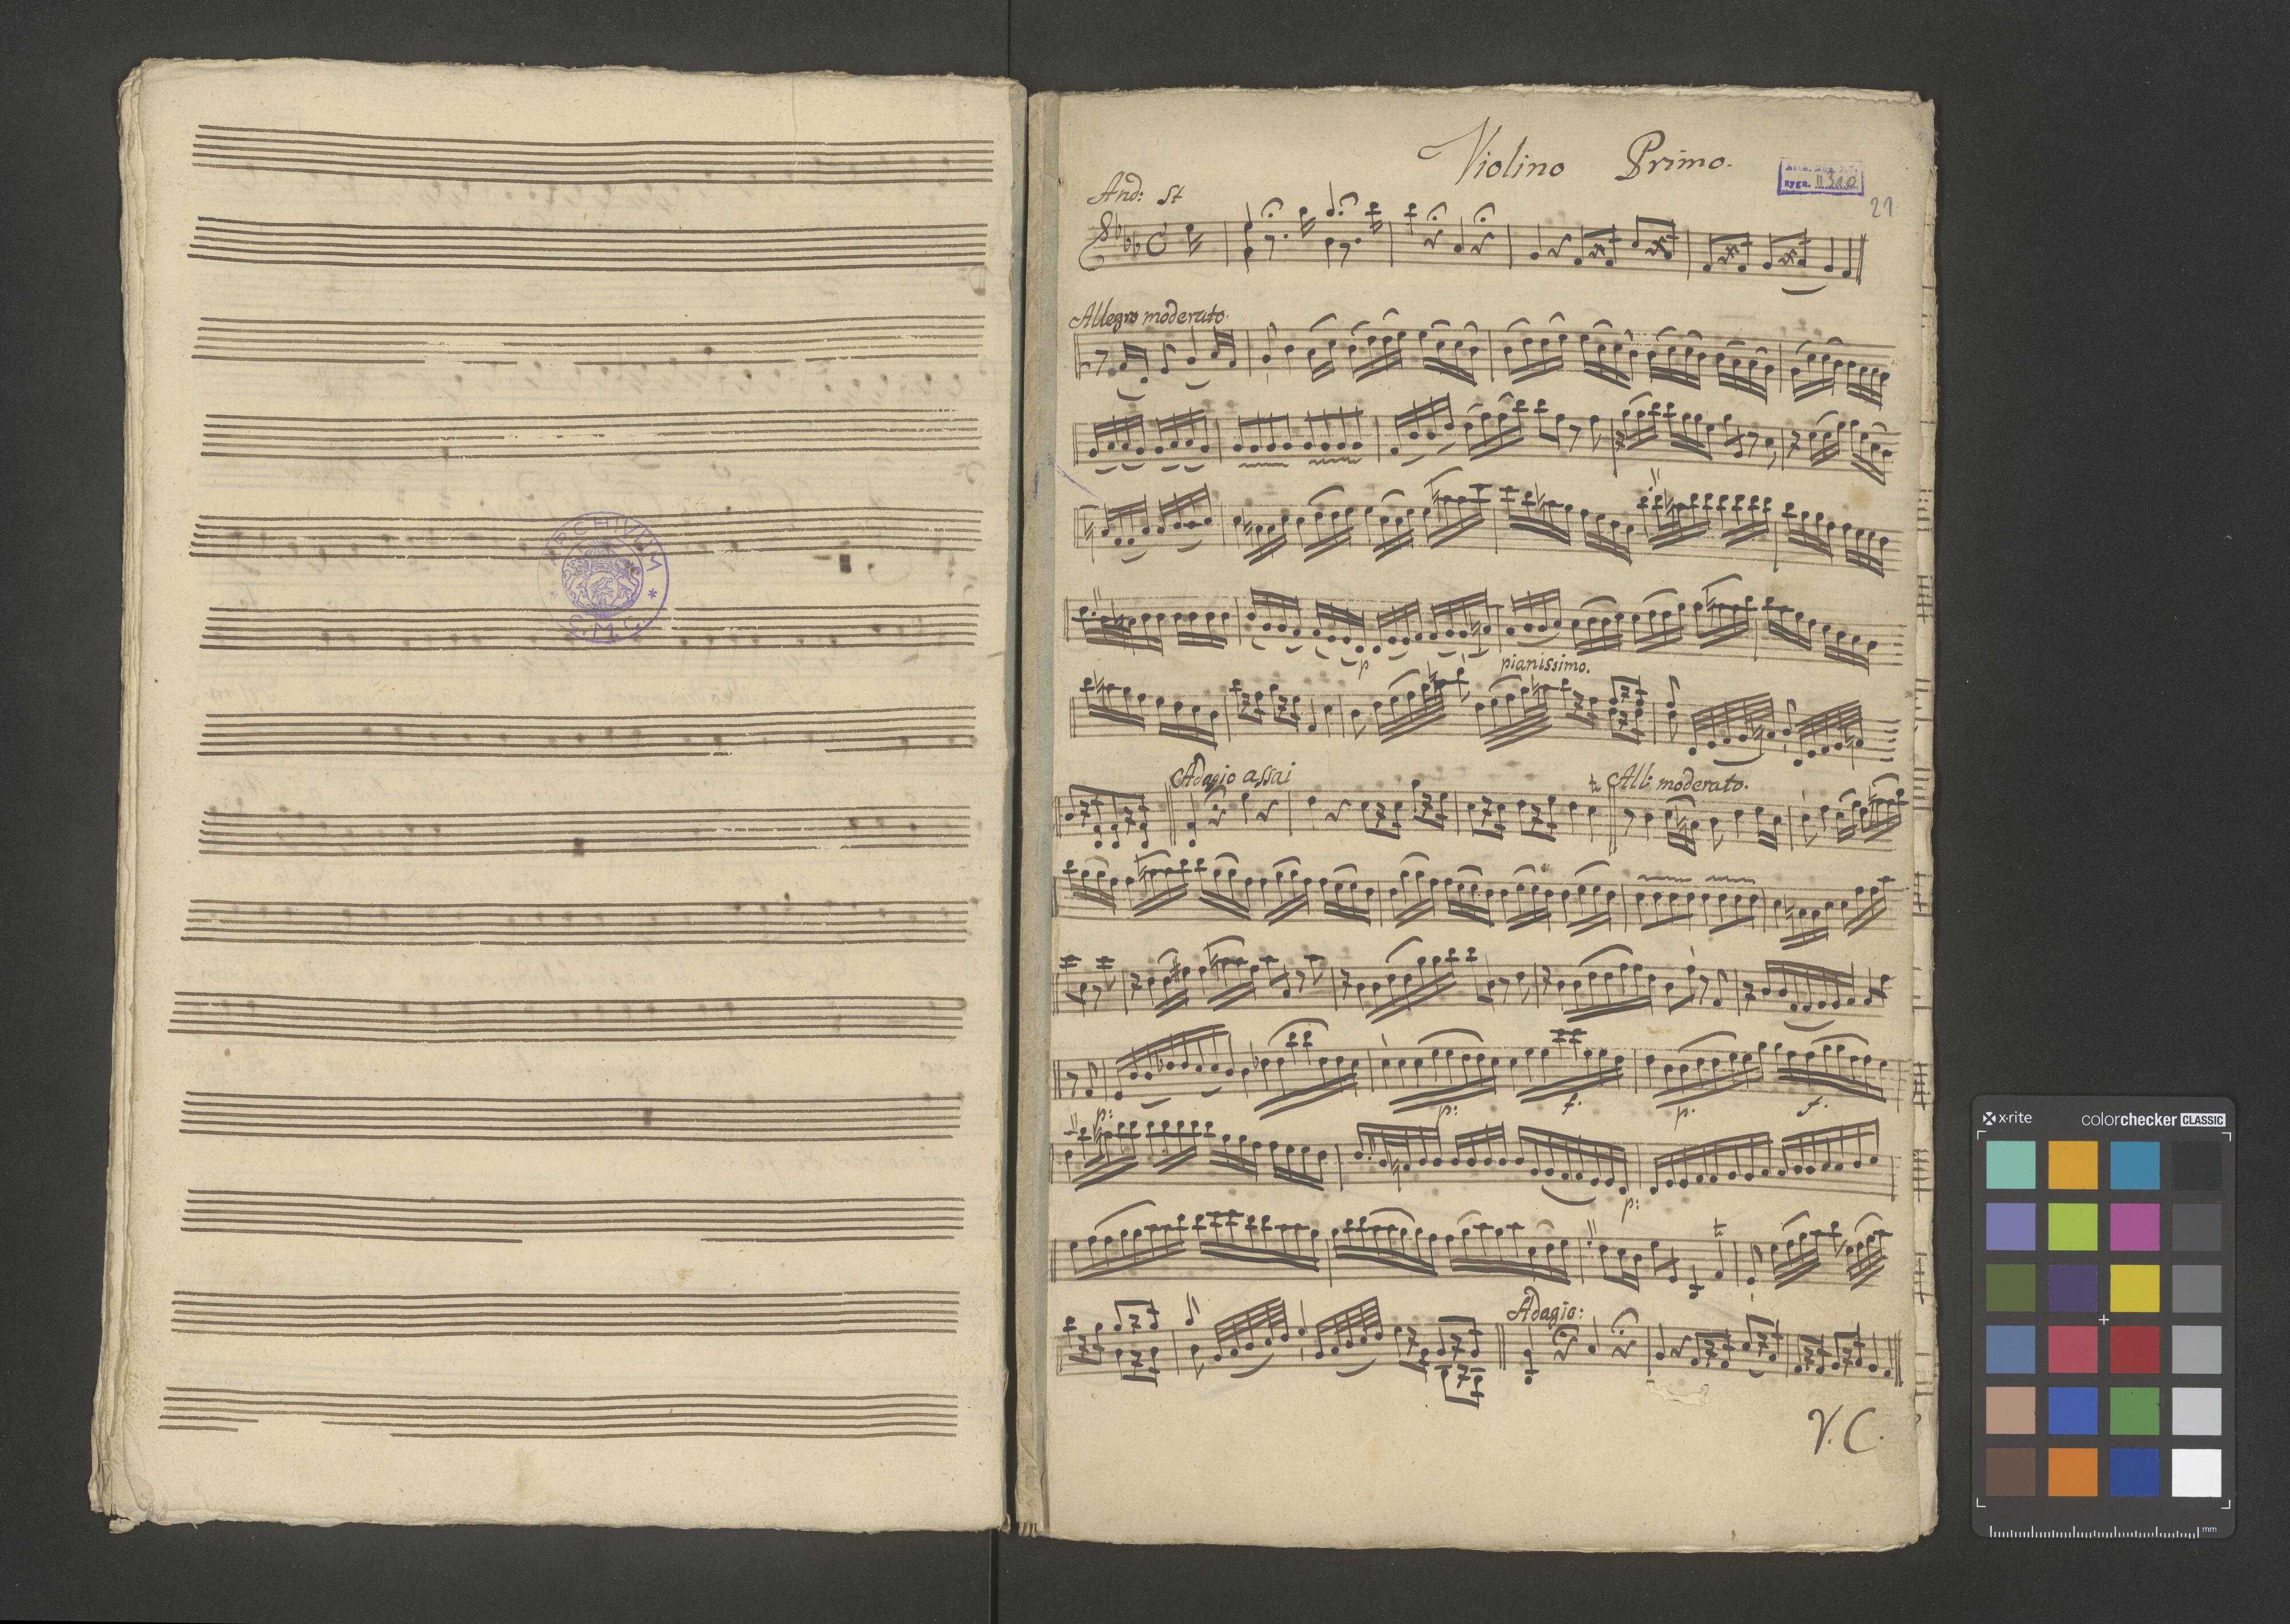 ARCHIVUM
* C.M.C. *
Violino Primo.
sygn. II 310
21
And: st
Allegro moderato.
p
pianissimo.
Adagio assai
tr
All: moderato.
p:
p:
f.
p.
f.
p:
tr
Adagio:
V. C.
x-rite
colorchecker CLASSIC
mm